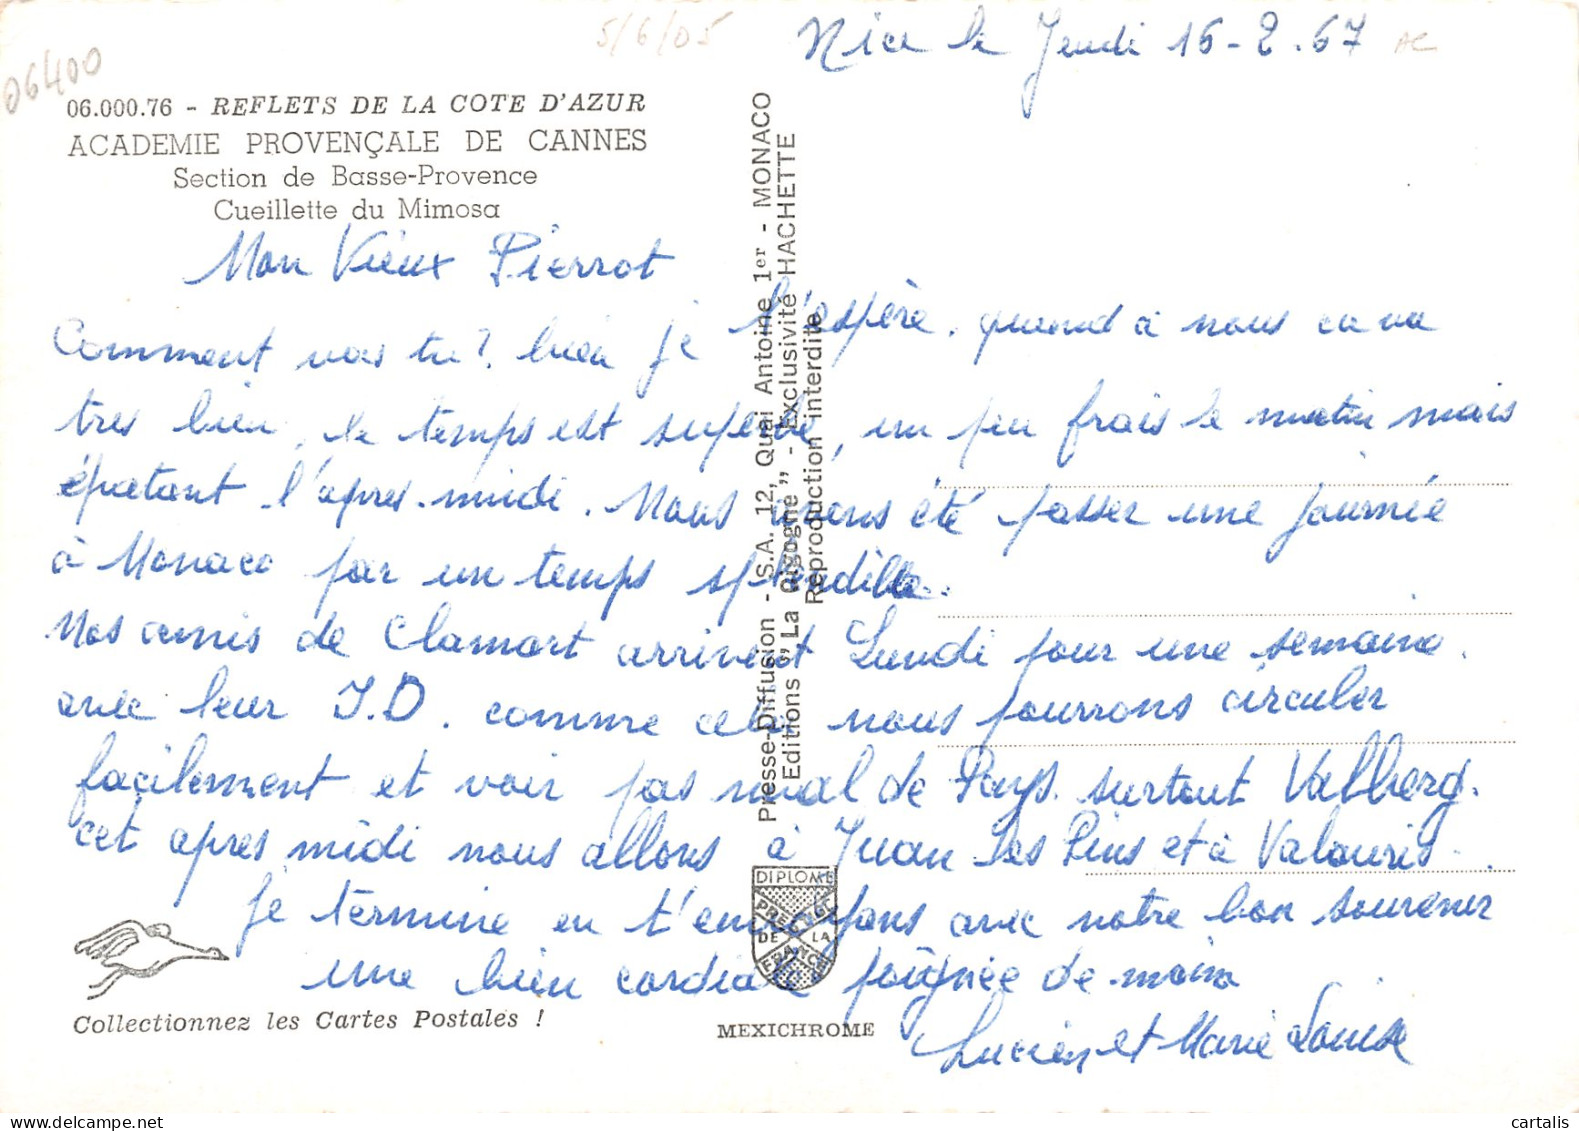 5/6/05
Nice le Jeudi 16-2.67
AC
06400
06.000.76 - REFLETS DE LA COTE D'AZUR
ACADEMIE PROVENÇALE DE CANNES
Section de Basse-Provence
Cueillette du Mimosa
Mon Vieux Pierrot
Comment vas tu? bien je l'espère. quand à nous ca va
tres bien, le temps est superbe, un peu frais le matin mais
épatant l'apres-midi. Nous avons été passer une journée
à Monaco par un temps splendide.
Nos amis de Clamart arrivent Lundi pour une semaine.
avec leur I.D. comme cela nous pourrons circuler
facilement et voir pas mal de Pays. surtout Valberg.
cet apres midi nous allons à Juan Les Pins et à Valauris.
je termine en t'envoyons avec notre bon souvenir
une bien cordiale poignée de main
Lucien et Marie Louise
Presse-Diffusion - S.A. 12, Quai Antoine 1er - MONACO
Editions "La Cigogne" - Exclusivité HACHETTE
Reproduction interdite
DIPLOME
PRESTIGE
DE LA
FRANCE
Collectionnez les Cartes Postales !
MEXICHROME
cartalis